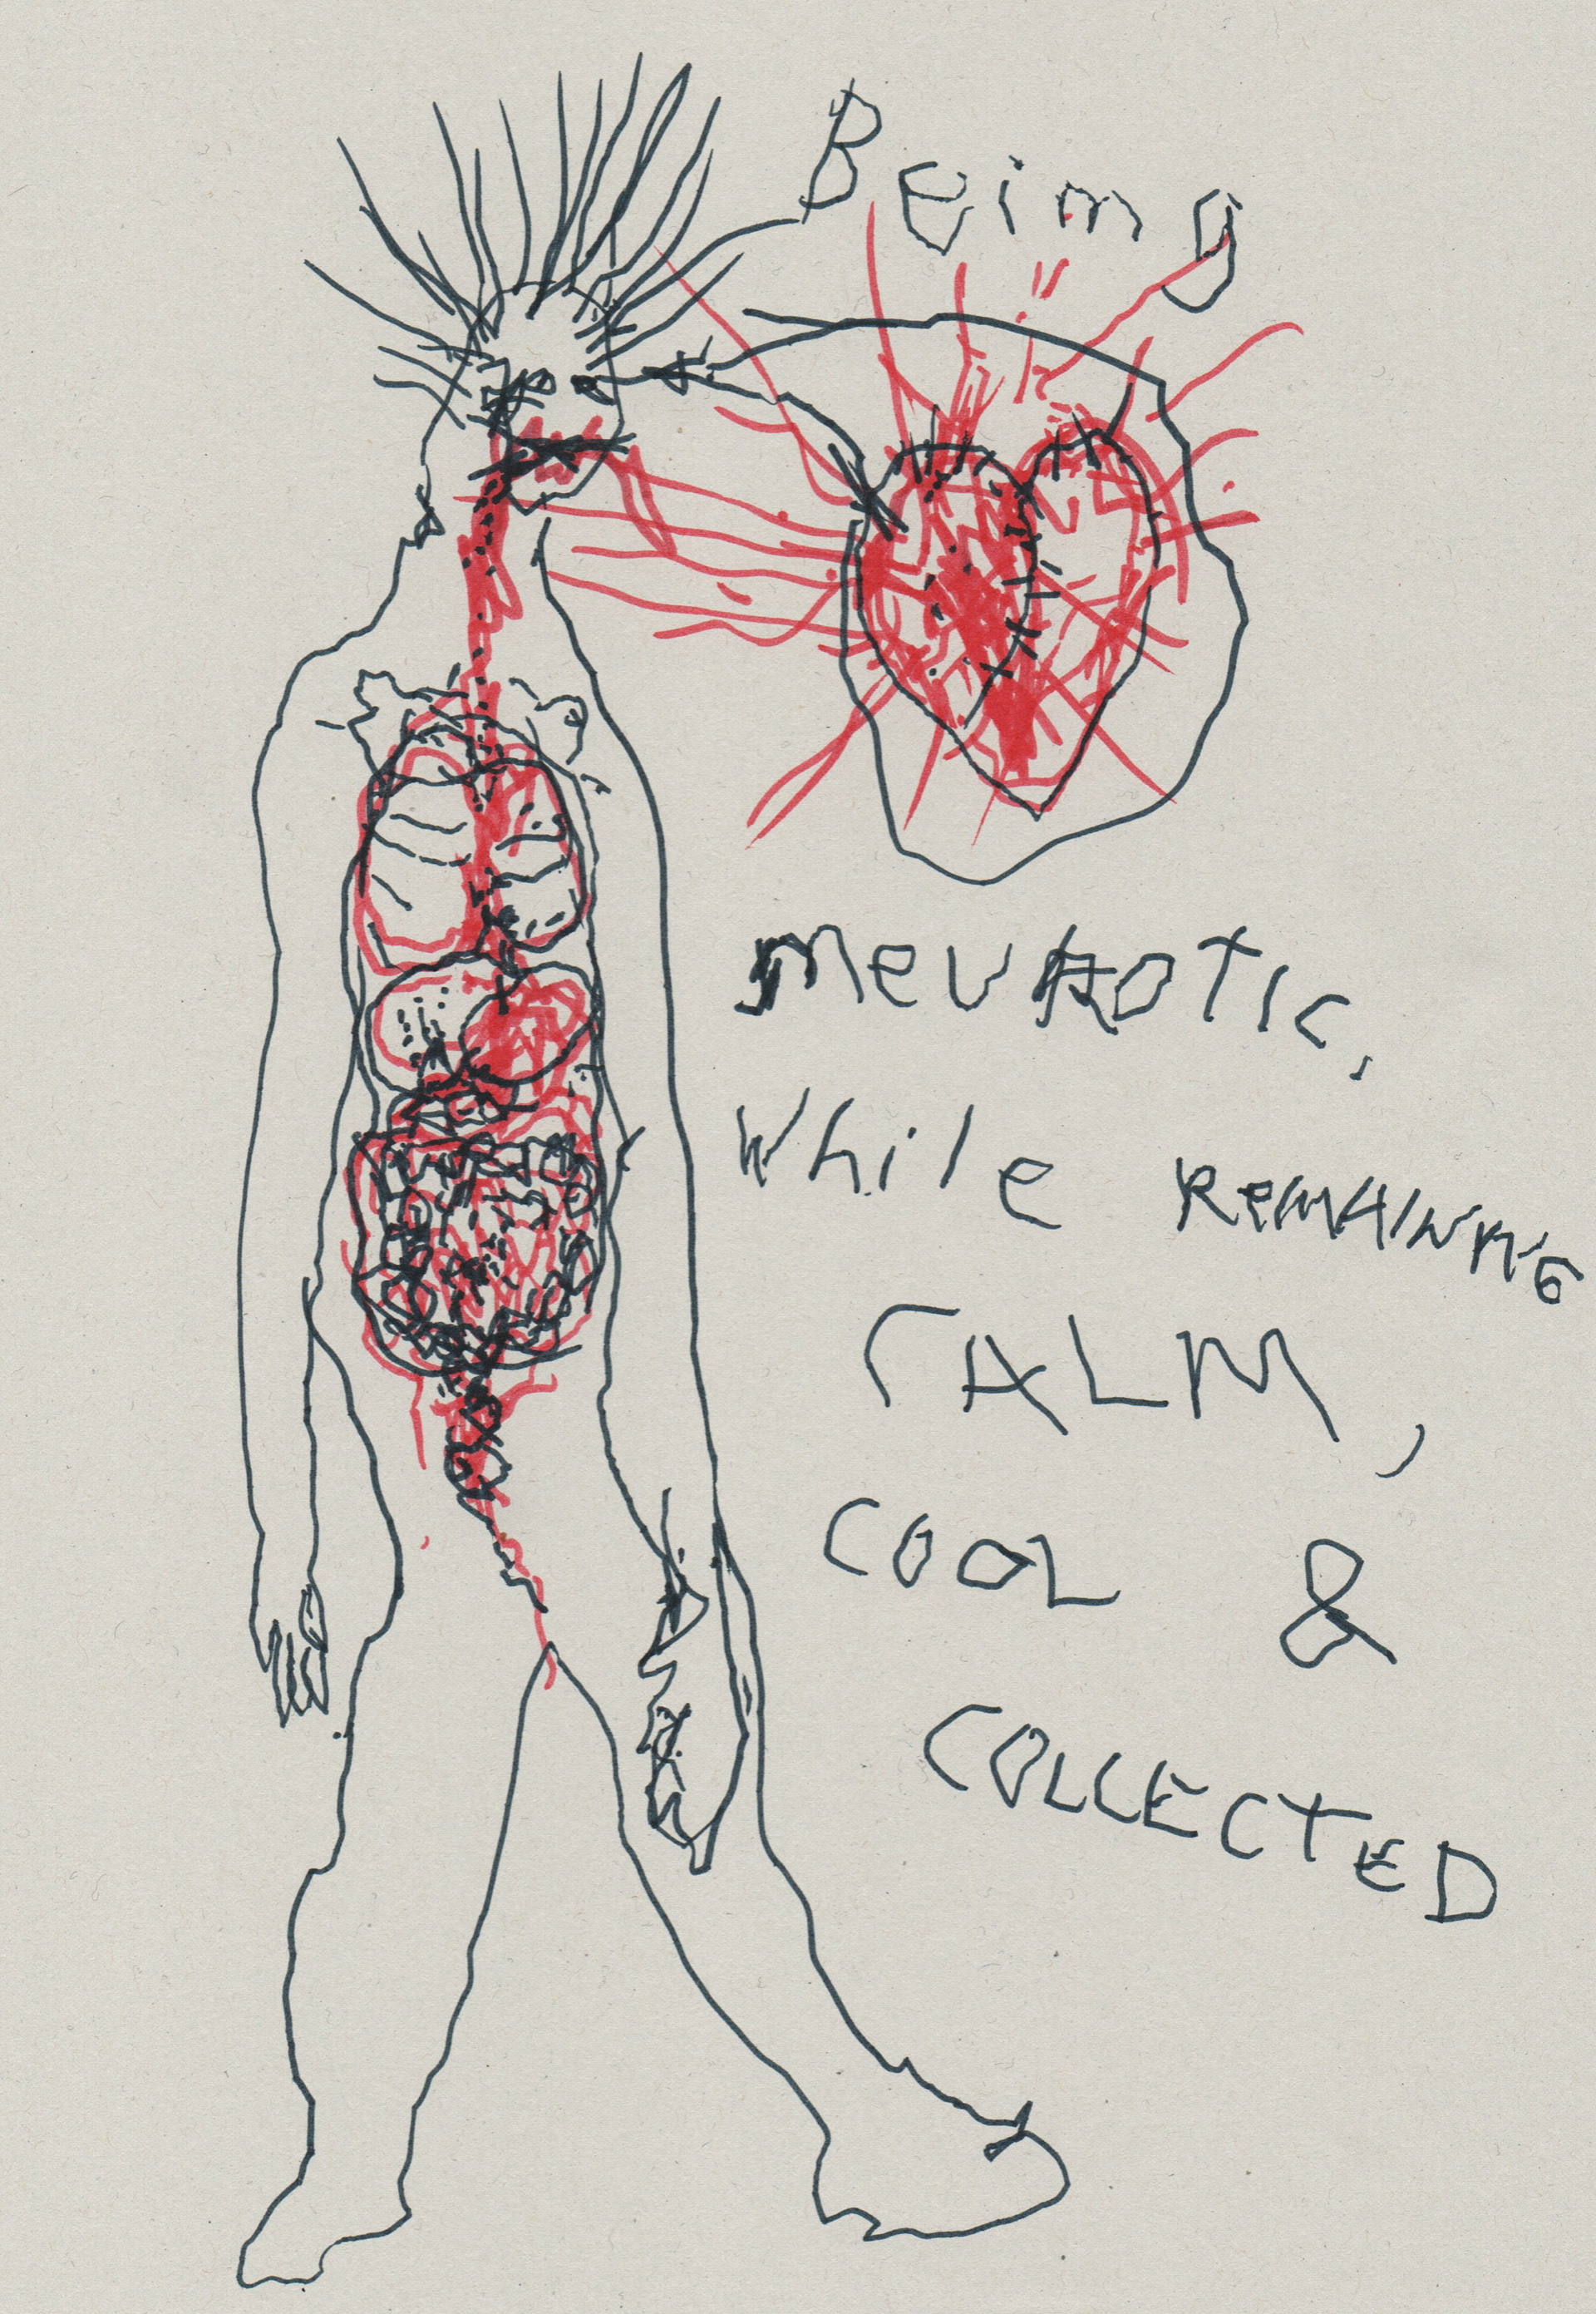 Being
neuRotic,
while REMAINING
CALM,
COOL &
COLLECTED